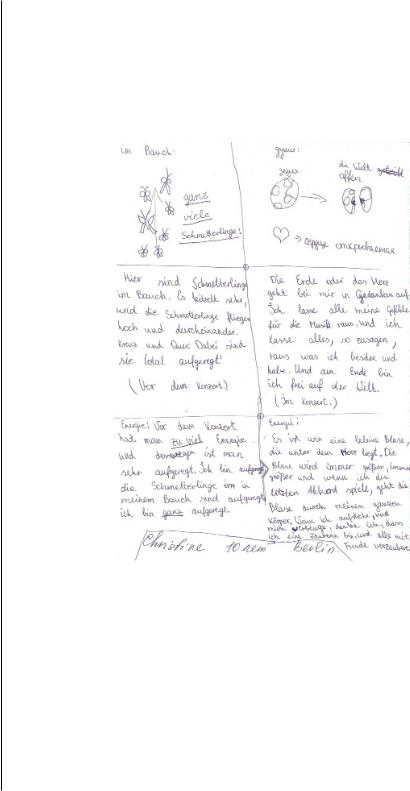 im Bauch:
ganz
viele
Schmetterlinge!
земля
die Welt
offen
→ сердце открывается
Hier sind Schmetterlinge
im Bauch. Es kribelt sehr,
und die Schmetterlinge fliegen
hoch und durcheinander.
Kreuz und Quer. Dabei sind
sie total aufgeregt!
(Vor dem Konzert.)
Die Erde oder das Herz
geht bei mir in Gedanken auf.
Ich lasse alle meine Gefühle
für die Musik raus, und ich
lasse alles, so zusagen,
raus was ich besitze und
habe. Und am Ende bin
ich frei auf der Welt.
(Im Konzert.)
Energie: Vor dem Konzert
hat man zu viel Energie
und ist man
sehr aufgeregt. Ich bin aufgeregt
die Schmetterlinge in
meinem Bauch sind aufgeregt
ich bin ganz aufgeregt.
Energie:
Es ist wie eine kleine Blase,
die unter dem Herz liegt. Die
Blase wird immer größer, immer
größer und wenn ich den
letzten Akkord spiele, geht die
Blase durch meinen ganzen
Körper. Wenn ich aufstehe, und
mich verbeuge, denke ich, dass
ich eine Zauberin bin, und alle mit
Freude verzaubere.
Christine 10 лет Berlin